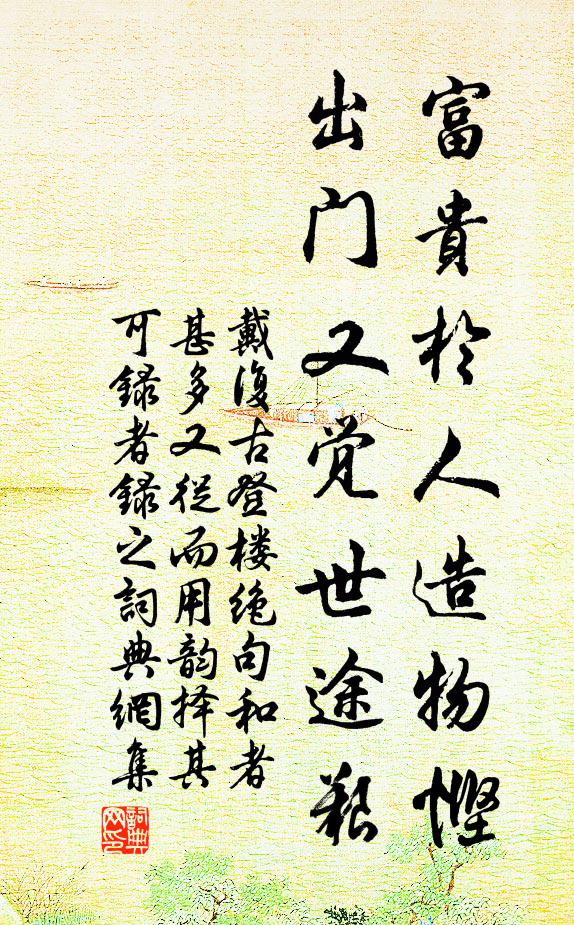 富貴於人造物慳
出门又觉世途艱
戴復古登楼绝句和者
甚多又從而用韵择其
可録者録之詞典網集
詞典
网印